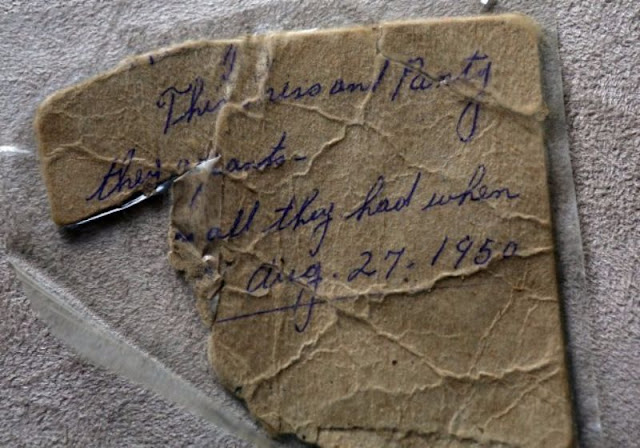 dress and Panty
they pants-
all they had when
Aug. 27. 1950